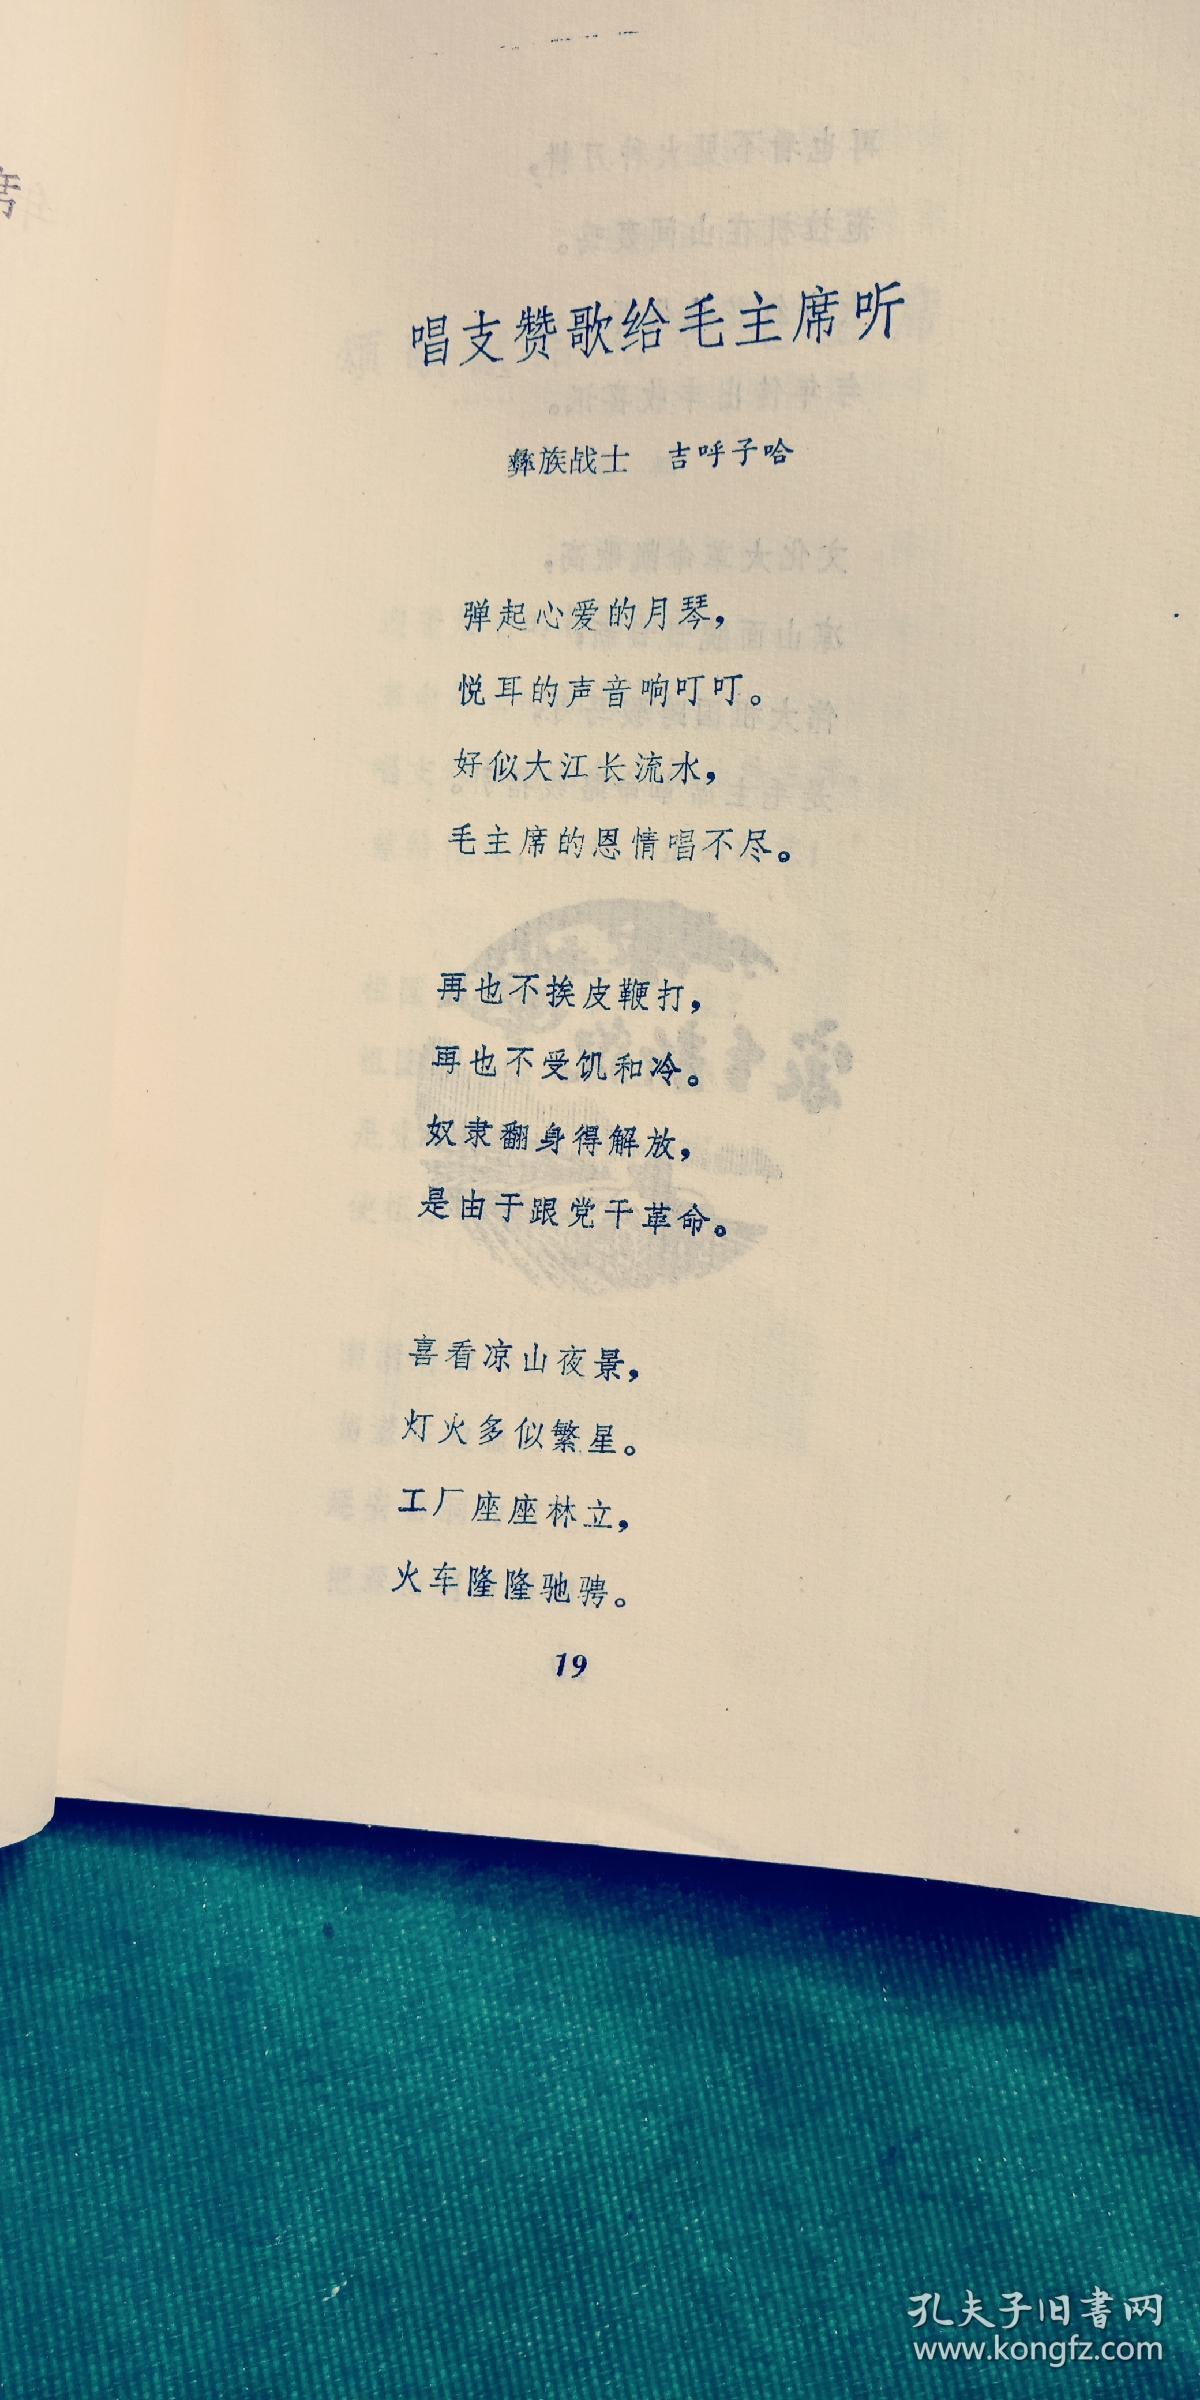 席
唱支赞歌给毛主席听
彝族战士 吉呼子哈
弹起心爱的月琴，
悦耳的声音响叮叮。
好似大江长流水，
毛主席的恩情唱不尽。
再也不挨皮鞭打，
再也不受饥和冷。
奴隶翻身得解放，
是由于跟党干革命。
喜看凉山夜景，
灯火多似繁星。
工厂座座林立，
火车隆隆驰骋。
19
孔夫子旧书网
www.kongfz.com